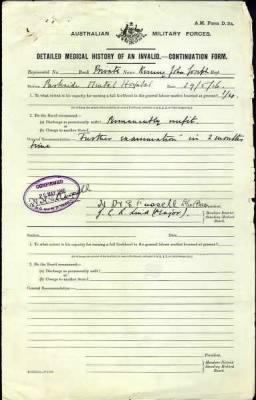 A.M. Form D. 2A.
AUSTRALIAN MILITARY FORCES.
DETAILED MEDICAL HISTORY OF AN INVALID.—CONTINUATION FORM.
Regimental No. Rank Private Name Kerwin John Joseph Regt.
Station Parkside Mental Hospital Date 29/5/16.
1. To what extent is his capacity for earning a full livelihood in the general labour market lessened at present?
2. Do the Board recommend—
(a) Discharge as permanently unfit? Permanently unfit.
(b) Change to another Board
General Recommendation "Further examination" in 2 months
time
CONFIRMED
Station
President.
Members District
Standing Medical
Board.
1. To what extent is his capacity for earning a full livelihood in the general labour market lessened at present?
2. Do the Board recommend—
(a) Discharge as permanently unfit?
(b) Change to another Board
General Recommendation
Station
Date
President.
Members District
Standing Medical
Board.